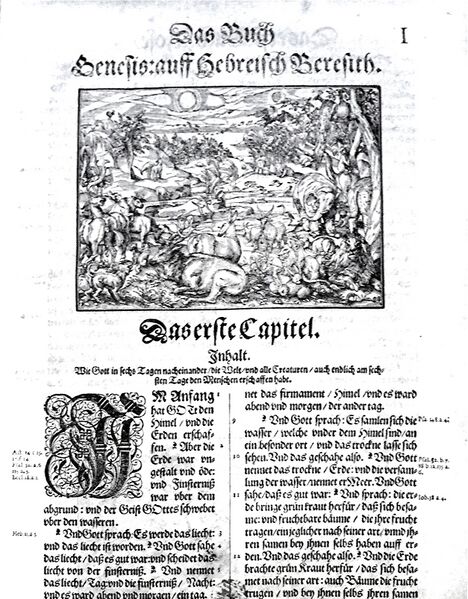 I
Das Buch
Genesis: auff Hebreisch Beresith.
Das erste Capitel.
Inhalt.
Wie Gott in sechs Tagen nacheinander / die Welt / und alle Creaturen / auch endlich am sech-
sten Tage den Menschen erschaffen habe.
IM Anfang
hat GOtt den
Himel / vnd die
Erden erschaf-
fen. ² Aber die
Erde war vn-
gestalt vnd öde:
vnd Finsternuß
war vber dem
abgrund: vnd der Geist GOttes schwebet
vber den wasseren.
³ Vnd Gott sprach: Es werde das liecht:
vnd das liecht ist worden. ⁴ Vnd Gott sahe
das liecht / daß es gut war: vnd scheidet das
liecht von der finsternuß. ⁵ Vnd nennet
das liecht / Tag: vnd die finsternuß / Nacht:
vnd es ward abend vnd morgen / ein tag.
net das firmament / Himel / vnd es ward
abend vnd morgen / der ander tag.
⁹ Vnd Gott sprach: Es samlen sich die
wasser / welche vnder dem Himel sind / an
ein besonder ort / vnd das trockne lasse sich
sehen. Vnd das geschahe also. Vnd Gott
nennet das trockne / Erde: vnd die versam-
lung der wasser / nennet er Meer. Vnd Gott
sahe / daß es gut war: Vnd sprach: die er-
de bringe grün kraut herfür / daß sich besa-
me: vnd fruchtbare bäume / die ihre frucht
tragen / ein jeglicher nach seiner art / vnnd ih-
ren samen bey ihnen selbs haben auff er-
den. Vnd das geschahe also. Vnd die Erde
brachte grün Kraut herfür / das sich besa-
met nach seiner art: auch Bäume die frucht
trugen / vnd bey ihnen selbs ihren samen